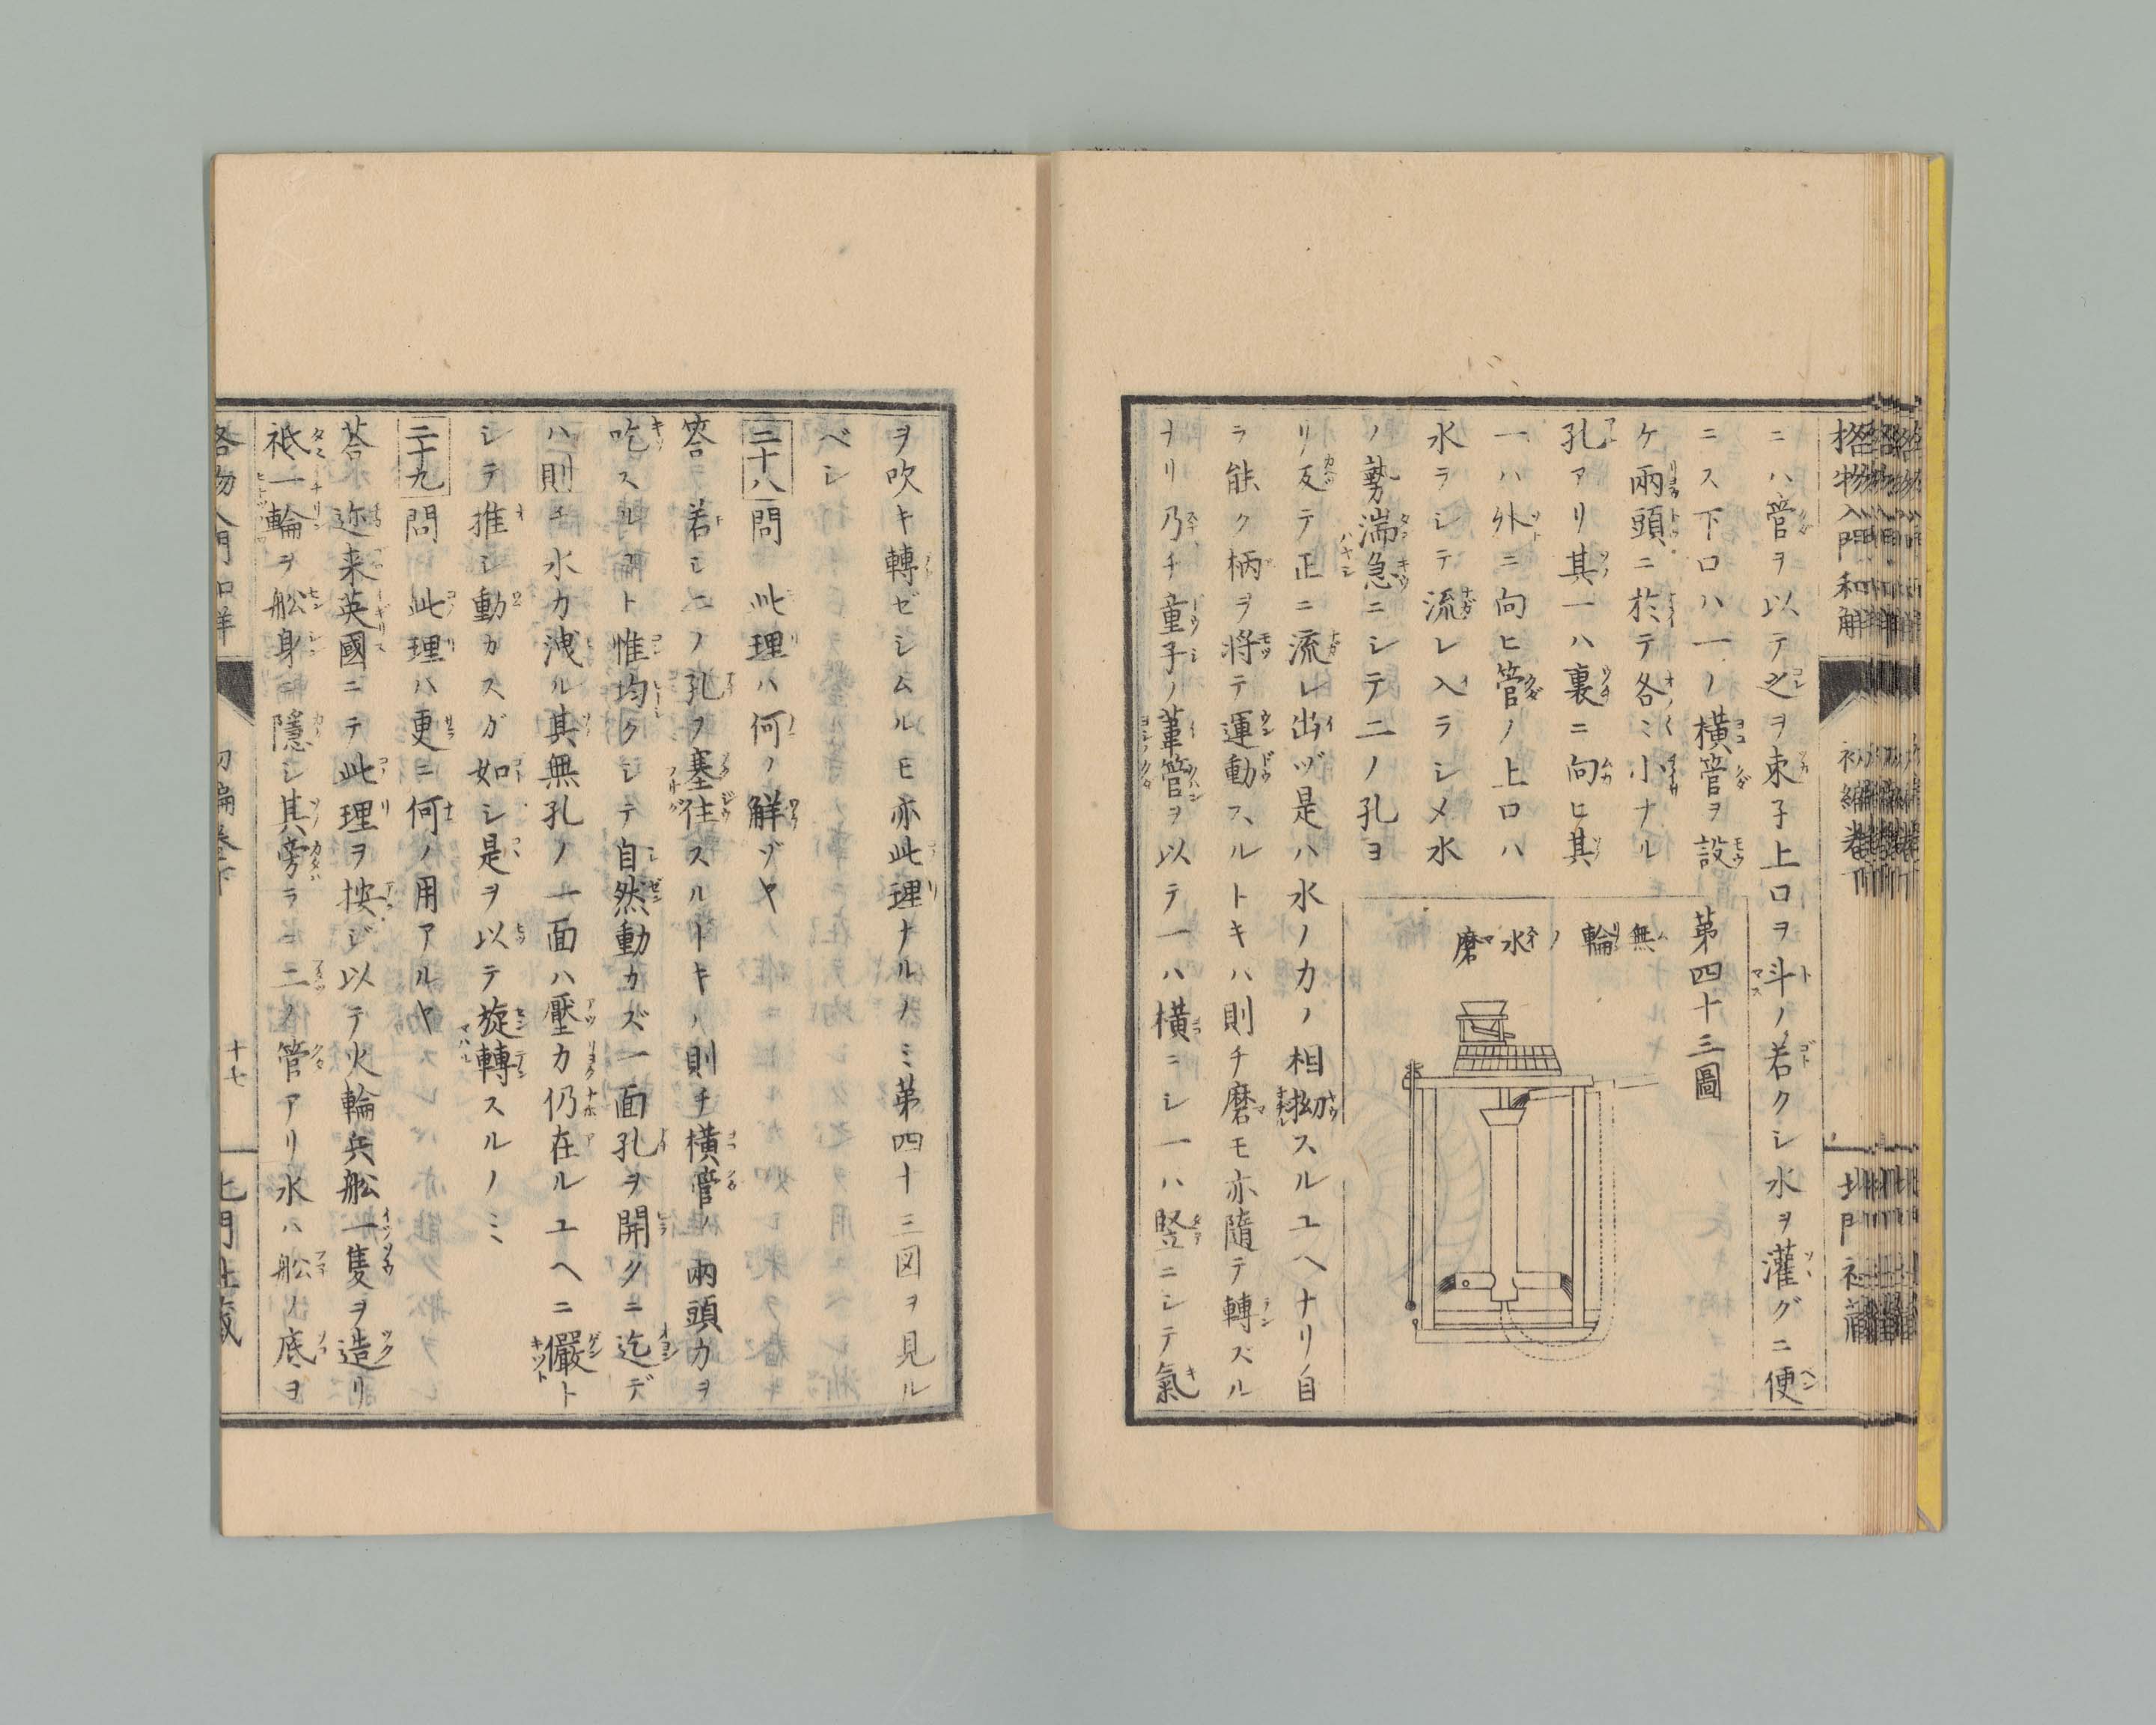 格物入門和解 初編巻下 北門社藏
ニハ管ヲ以テ之ヲ束子上口ヲ斗ノ若クシ水ヲ灌グニ便
ニス下口ハ一ノ横管ヲ設
ケ兩頭ニ於テ各ミ小ナル
孔アリ其一ハ裏ニ向ヒ其
一ハ外ニ向ヒ管ノ上口ハ
水ヲシテ流レ入ラシメ水
ノ勢湍急ニシテ二ノ孔ヨ
リ反テ正ニ流レ出ヅ是ハ水ノ力ノ相拗スルユヘナリ自
ラ能ク柄ヲ將テ運動スルトキハ則チ磨モ亦隨テ轉ズル
ナリ乃チ童子ノ葦管ヲ以テ一ハ横ニシ一ハ竪ニシテ氣
第四十三圖
無輪ノ水磨
ヲ吹キ轉ゼシムルモ亦此理ナルノミ第四十三図ヲ見ル
ベシ
二十八 問 此理ハ何ノ解ゾヤ
答 若シ二ノ孔ヲ塞住スルトキハ則チ横管ノ兩頭力ヲ
吃スルヿト惟均クシテ自然動カズ一面孔ヲ開クニ迄デ
ハ則チ水力洩ル其無孔ノ一面ハ壓力仍在ルユヘニ儼ト
シテ推シ動カスガ如シ是ヲ以テ旋轉スルノミ
二十九 問 此理ハ更ニ何ノ用アルヤ
荅 迩来英國ニテ此理ヲ按ジ以テ火輪兵舩一隻ヲ造リ
祗一輪ヲ舩身ニ隱シ其旁ラニ二ノ管アリ水ハ舩ノ底ヲ
格物入門和解 初編巻下 十七 北門社藏